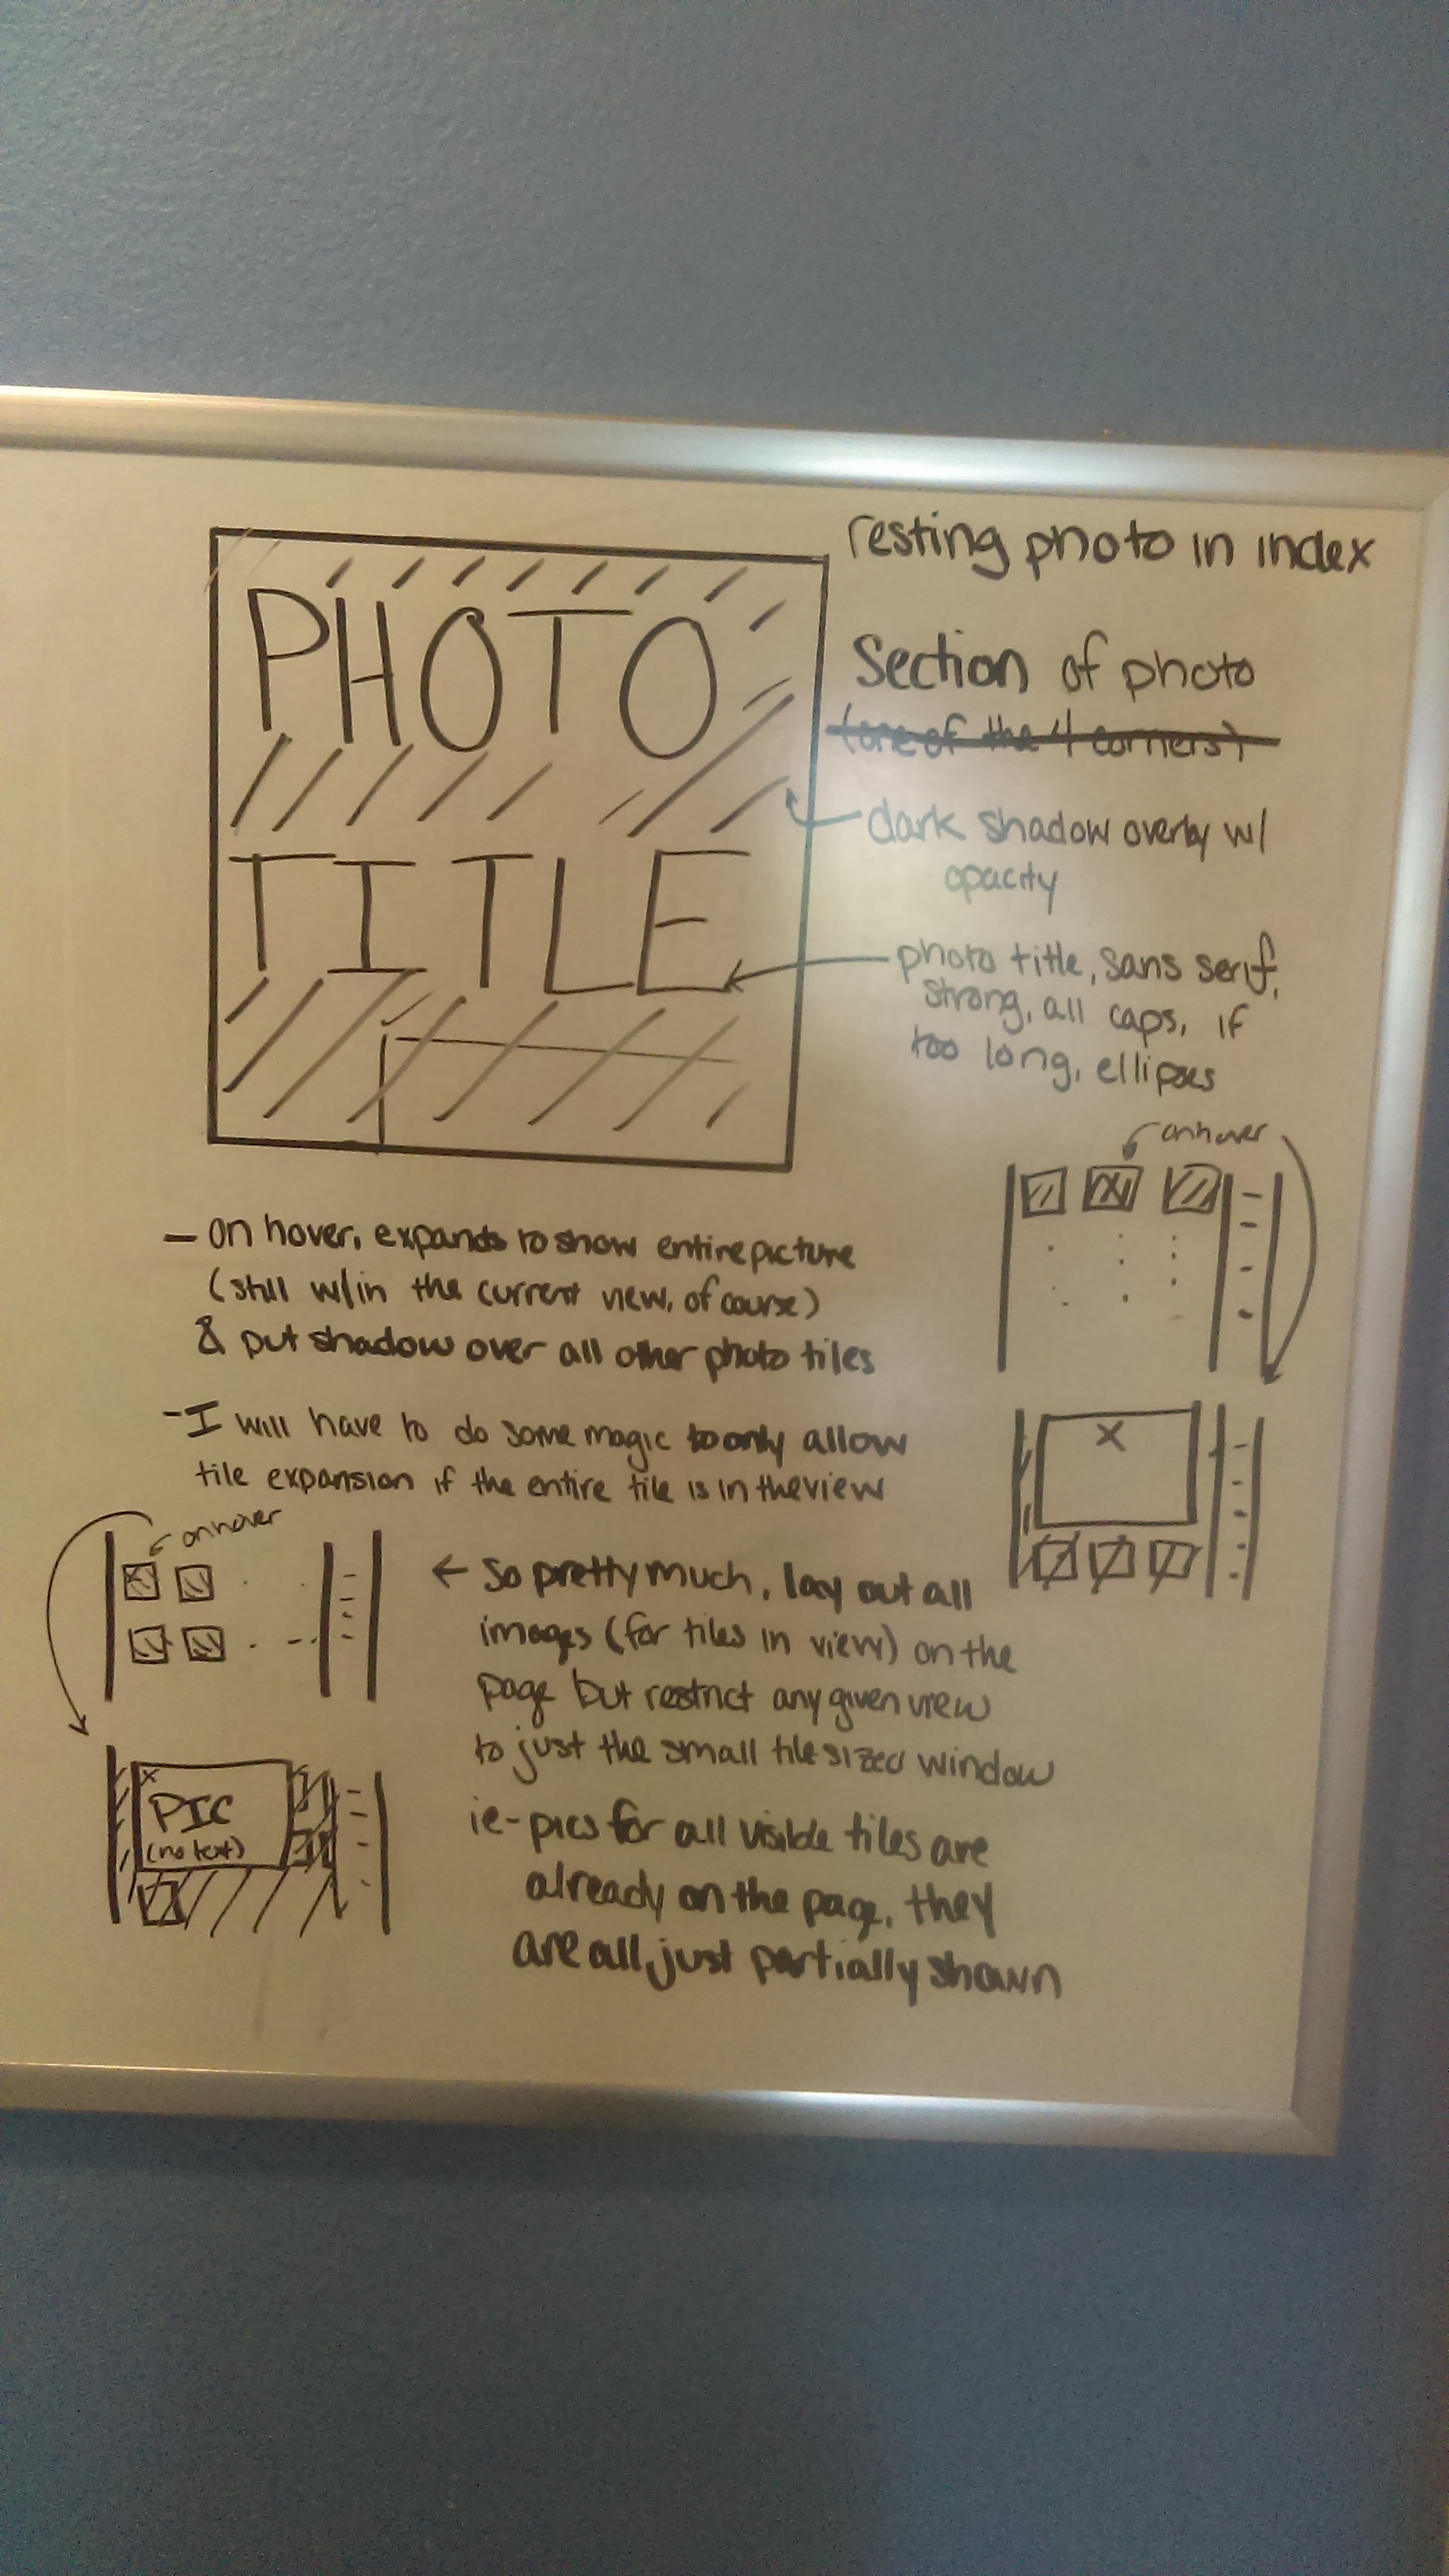 resting photo in index
PHOTO
TITLE
Section of photo
(one of the 4 corners)
dark shadow overlay w/
opacity
photo title, sans serif,
strong, all caps, if
too long, ellipses
on hover
- on hover, expands to show entire picture
(still w/in the current view, of course)
& put shadow over all other photo tiles
- I will have to do some magic to only allow
tile expansion if the entire tile is in the view
X
on hover
← so pretty much, lay out all
images (for tiles in view) on the
page but restrict any given view
to just the small tile sized window
ie- pics for all visible tiles are
already on the page, they
are all just partially shown
x
PIC
(no text)